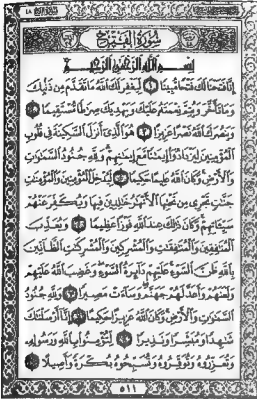 سُورَةُ الْفَتْحِ
بِسْمِ اللَّهِ الرَّحْمَٰنِ الرَّحِيمِ
إِنَّا فَتَحْنَا لَكَ فَتْحًا مُّبِينًا ١ لِّيَغْفِرَ لَكَ اللَّهُ مَا تَقَدَّمَ مِن ذَنۢبِكَ
وَمَا تَأَخَّرَ وَيُتِمَّ نِعْمَتَهُ عَلَيْكَ وَيَهْدِيَكَ صِرَاطًا مُّسْتَقِيمًا ٢
وَيَنصُرَكَ اللَّهُ نَصْرًا عَزِيزًا ٣ هُوَ الَّذِي أَنزَلَ السَّكِينَةَ فِي قُلُوبِ
الْمُؤْمِنِينَ لِيَزْدَادُوا إِيمَٰنًا مَّعَ إِيمَٰنِهِمْ وَلِلَّهِ جُنُودُ السَّمَٰوَٰتِ
وَالْأَرْضِ وَكَانَ اللَّهُ عَلِيمًا حَكِيمًا ٤ لِّيُدْخِلَ الْمُؤْمِنِينَ وَالْمُؤْمِنَٰتِ
جَنَّٰتٍ تَجْرِي مِن تَحْتِهَا الْأَنْهَٰرُ خَٰلِدِينَ فِيهَا وَيُكَفِّرَ عَنْهُمْ
سَيِّـَٔاتِهِمْ وَكَانَ ذَٰلِكَ عِندَ اللَّهِ فَوْزًا عَظِيمًا ٥ وَيُعَذِّبَ
الْمُنَٰفِقِينَ وَالْمُنَٰفِقَٰتِ وَالْمُشْرِكِينَ وَالْمُشْرِكَٰتِ الظَّانِّينَ
بِاللَّهِ ظَنَّ السَّوْءِ عَلَيْهِمْ دَائِرَةُ السَّوْءِ وَغَضِبَ اللَّهُ عَلَيْهِمْ
وَلَعَنَهُمْ وَأَعَدَّ لَهُمْ جَهَنَّمَ وَسَاءَتْ مَصِيرًا ٦ وَلِلَّهِ جُنُودُ
السَّمَٰوَٰتِ وَالْأَرْضِ وَكَانَ اللَّهُ عَزِيزًا حَكِيمًا ٧ إِنَّا أَرْسَلْنَٰكَ
شَٰهِدًا وَمُبَشِّرًا وَنَذِيرًا ٨ لِّتُؤْمِنُوا بِاللَّهِ وَرَسُولِهِ
وَتُعَزِّرُوهُ وَتُوَقِّرُوهُ وَتُسَبِّحُوهُ بُكْرَةً وَأَصِيلًا ٩
٥١١